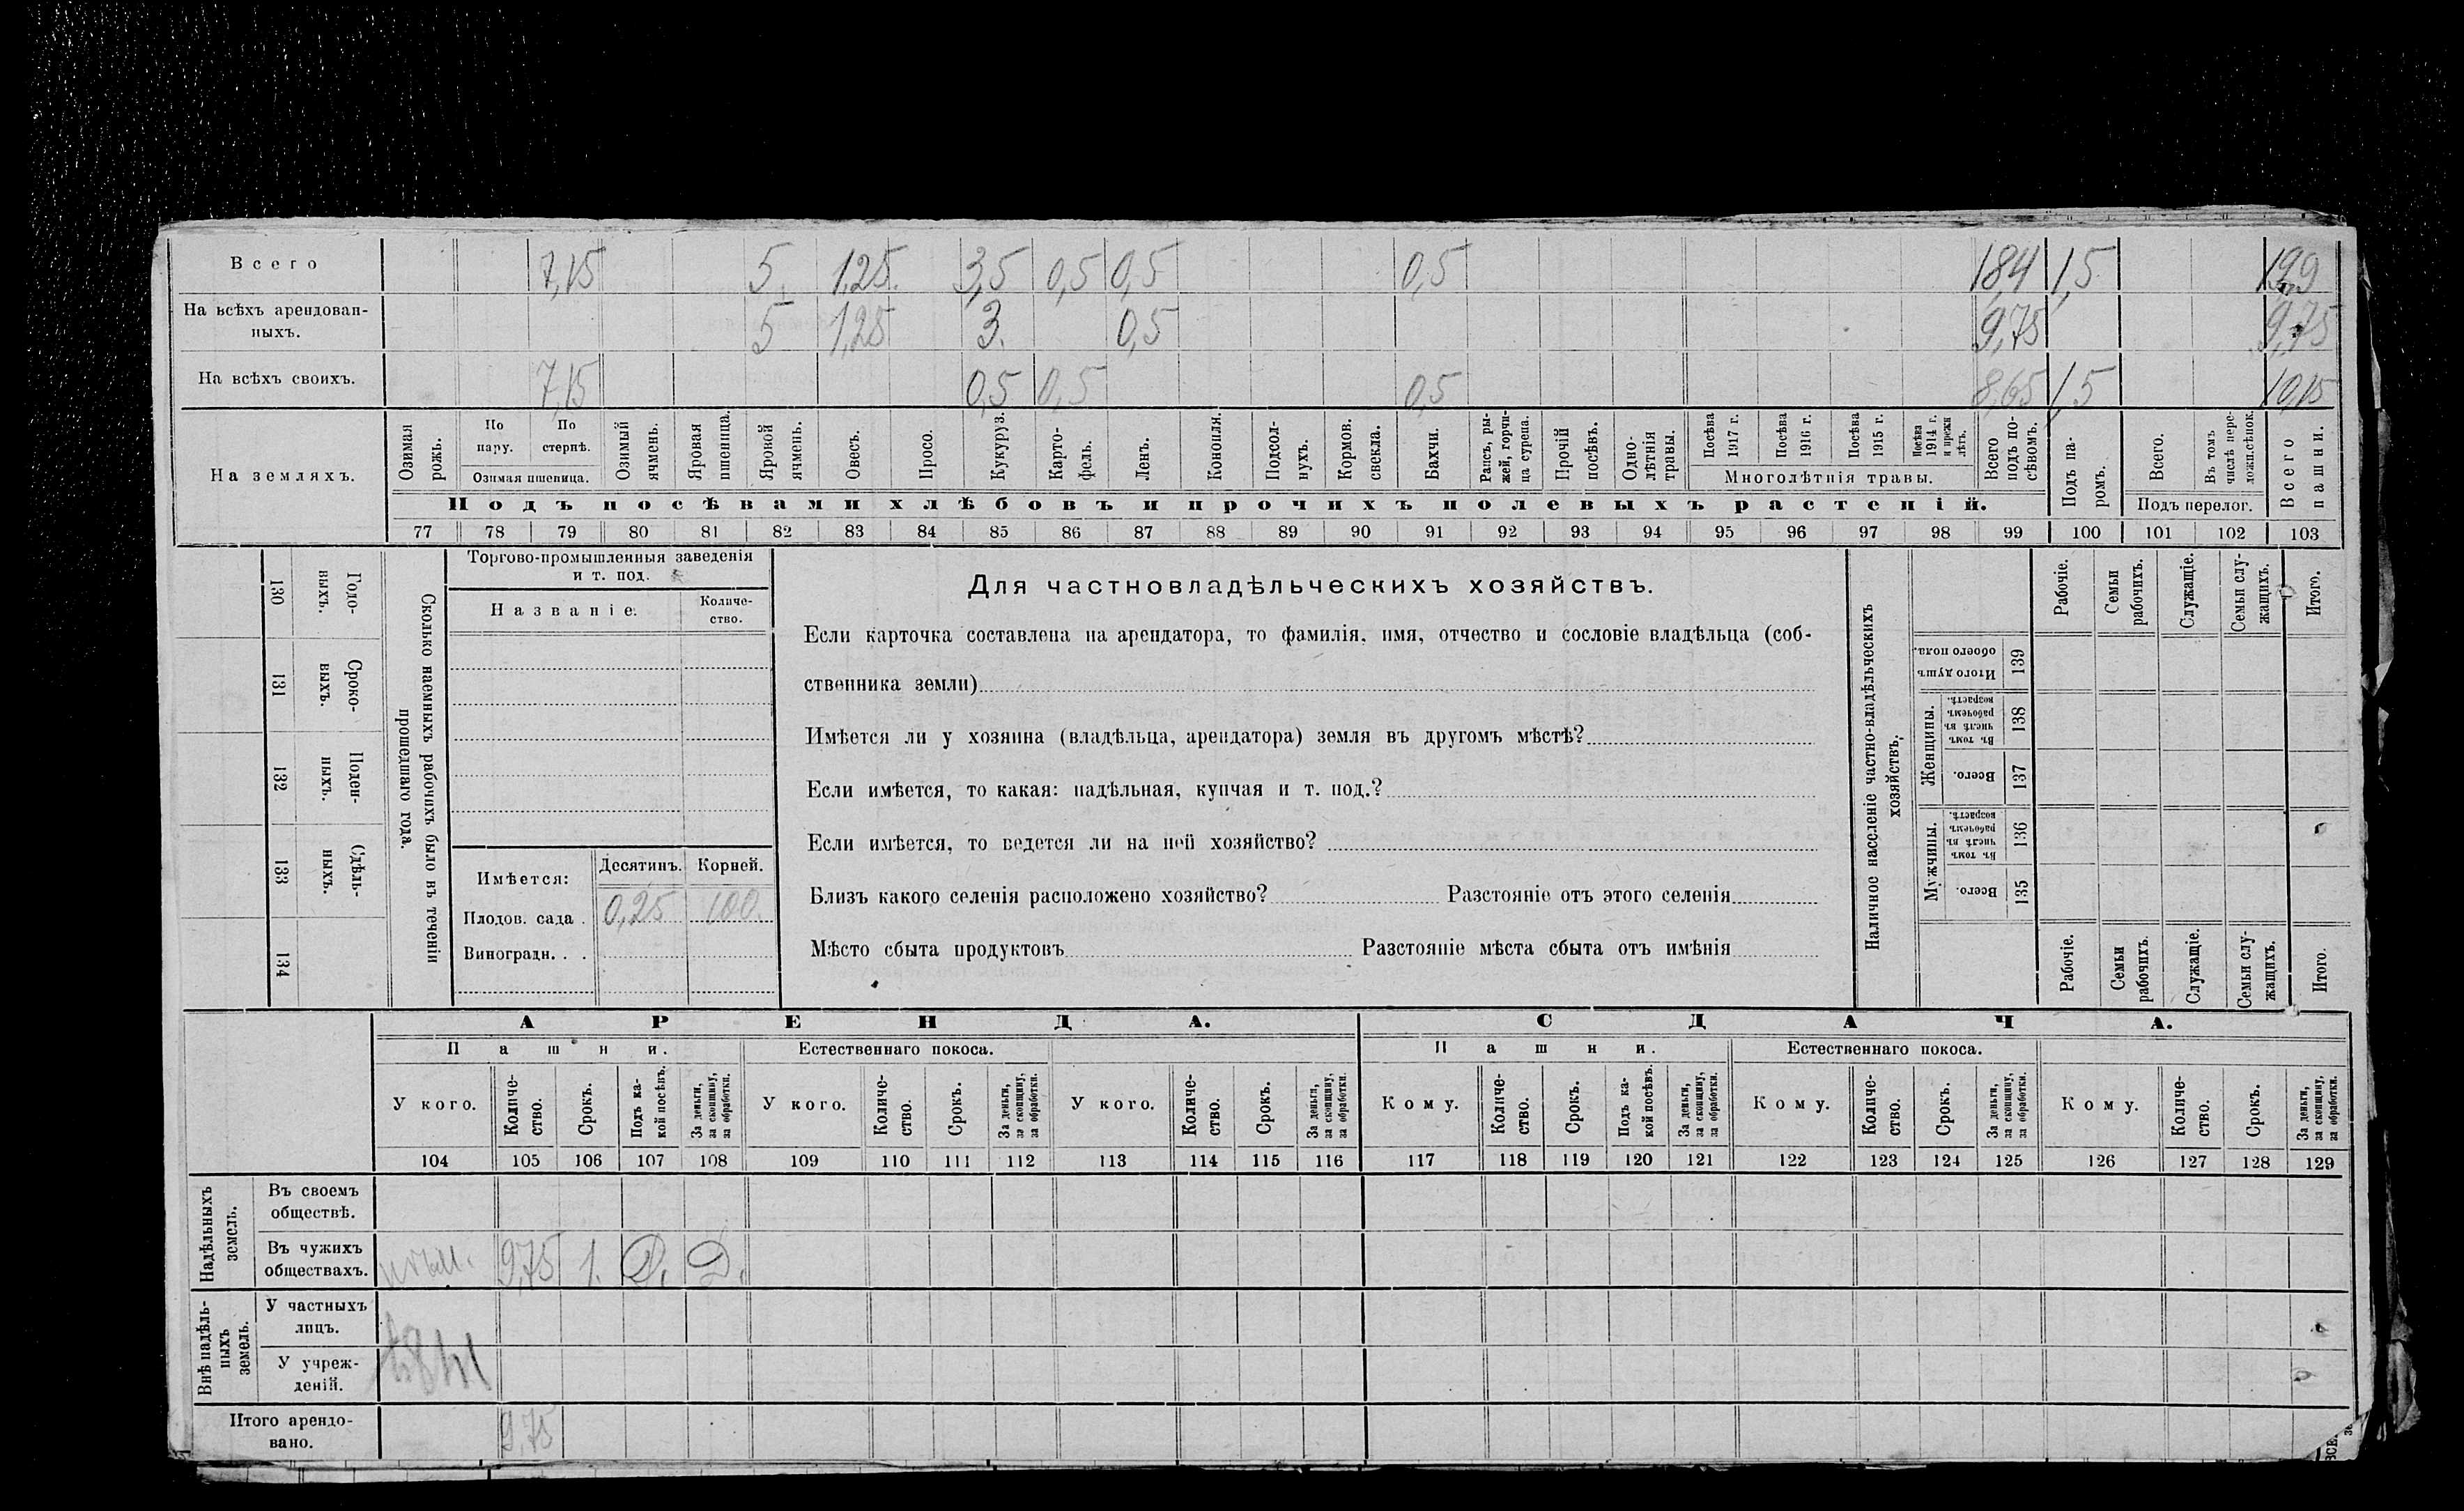 Всего 7,15 5. 1,25. 3,5 0,5 0,5 0,5 18,4 1,5 19,9
На всѣхъ арендован-
ныхъ. 5 1,25 3. 0,5 9,75 9,75
На всѣхъ своихъ. 7,15 0,5 0,5 0,5 8,65 1,5 10,15
На земляхъ.
Озимая рожь.
По пару.
По стернѣ.
Озимая пшеница.
Озимый ячмень.
Яровая пшеница.
Яровой ячмень.
Овесъ.
Просо.
Кукуруз.
Карто-
фель.
Ленъ.
Конопля.
Подсол-
нухъ.
Кормов.
свекла.
Бахчи.
Рапсъ, ры-
жей, горчи-
ца сурепа.
Прочій
посѣвъ.
Одно-
лѣтнія
травы.
Посѣва
1917 г.
Посѣва
1916 г.
Посѣва
1915 г.
Посѣва
1914 г.
и прежн
лѣтъ.
Многолѣтнія травы.
Всего
подъ по-
сѣвомъ.
Подъ па-
ромъ.
Всего.
Въ томъ
числѣ пере-
ложн.сѣнок.
Подъ перелог.
Всего
пашни.
Подъ посѣвами хлѣбовъ и прочихъ полевыхъ растеній.
77 78 79 80 81 82 83 84 85 86 87 88 89 90 91 92 93 94 95 96 97 98 99 100 101 102 103
Сколько наемныхъ рабочихъ было въ теченіи
прошедшаго года.
Годо-
выхъ.
130
Сроко-
выхъ.
131
Поден-
ныхъ.
132
Сдѣль-
ныхъ.
133
134
Торгово-промышленныя заведенія
и т. под.
Названіе.
Количе-
ство.
Имѣется:
Десятинъ. Корней.
Плодов. сада . 0,25 100.
Виноградн. . .
Для частновладѣльческихъ хозяйствъ.
Если карточка составлена на арендатора, то фамилія, имя, отчество и сословіе владѣльца (соб-
ственника земли)
Имѣется ли у хозяина (владѣльца, арендатора) земля въ другомъ мѣстѣ?
Если имѣется, то какая: надѣльная, купчая и т. под.?
Если имѣется, то ведется ли на ней хозяйство?
Близъ какого селенія расположено хозяйство? Разстояніе отъ этого селенія
Мѣсто сбыта продуктовъ Разстояніе мѣста сбыта отъ имѣнія
Наличное населеніе частно-владѣльческихъ
хозяйствъ.
Рабочіе.
Семьи
рабочихъ.
Служащіе.
Семьи слу-
жащихъ.
Итого.
Итого душъ
обоего пола.
139
Женщины.
Въ томъ
числѣ въ
рабочемъ
возрастѣ.
138
Всего.
137
Мужчины.
Въ томъ
числѣ въ
рабочемъ
возрастѣ.
136
Всего.
135
Рабочіе.
Семьи
рабочихъ.
Служащіе.
Семьи слу-
жащихъ.
Итого.
АРЕНДА. СДАЧА.
Пашни. Естественнаго покоса. Пашни. Естественнаго покоса.
У кого.
Количе-
ство.
Срокъ.
Подъ ка-
кой посѣвъ.
За деньги,
за скопщину,
за обработки.
У кого.
Количе-
ство.
Срокъ.
За деньги,
за скопщину,
за обработки.
У кого.
Количе-
ство.
Срокъ.
За деньги,
за скопщину,
за обработки.
Кому.
Количе-
ство.
Срокъ.
Подъ ка-
кой посѣвъ.
За деньги,
за скопщину,
за обработки.
Кому.
Количе-
ство.
Срокъ.
За деньги,
за скопщину,
за обработки.
Кому.
Количе-
ство.
Срокъ.
За деньги,
за скопщину,
за обработки.
104 105 106 107 108 109 110 111 112 113 114 115 116 117 118 119 120 121 122 123 124 125 126 127 128 129
Надѣльныхъ
земель.
Въ своемъ
обществѣ.
Въ чужихъ
обществахъ. 9,75 1. Д.
Внѣ надѣль-
ныхъ
земель.
У частныхъ
лицъ.
У учреж-
деній.
Итого арендо-
вано. 9,75